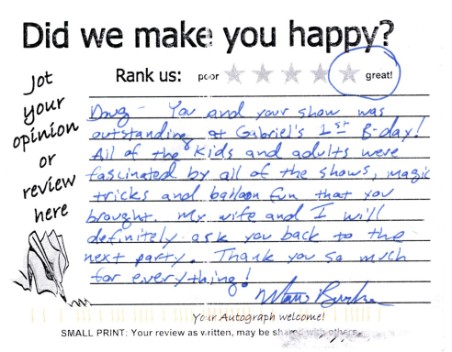 Did we make you happy?
Jot
your
opinion
or
review
here
Rank us: poor great!
Doug - You and your show was
outstanding at Gabriel's 1st B-day!
All of the kids and adults were
fascinated by all of the shows, magic
tricks and balloon fun that you
brought. My wife and I will
definitely ask you back to the
next party. Thank you so much
for everything!
Your Autograph welcome!
SMALL PRINT: Your review as written, may be shared with others.